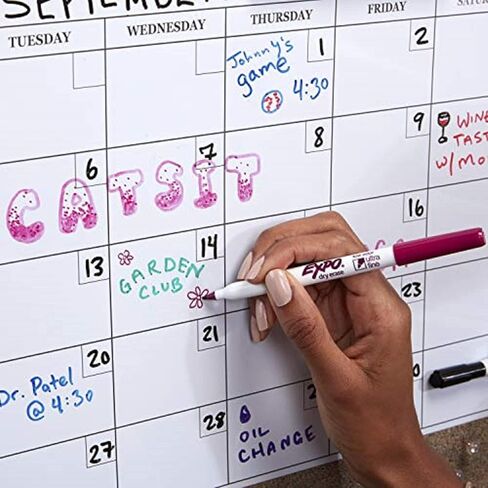 SEPTEMBER
TUESDAY WEDNESDAY THURSDAY FRIDAY
1 2
Johnny's
game
4:30
6 7 8 9
CATSIT
WINE
TAST
w/MO
13 14 16
GARDEN
CLUB
EXPO
dry erase
ultra
fine
20 21 23
Dr. Patel
@ 4:30
27 28
OIL
CHANGE